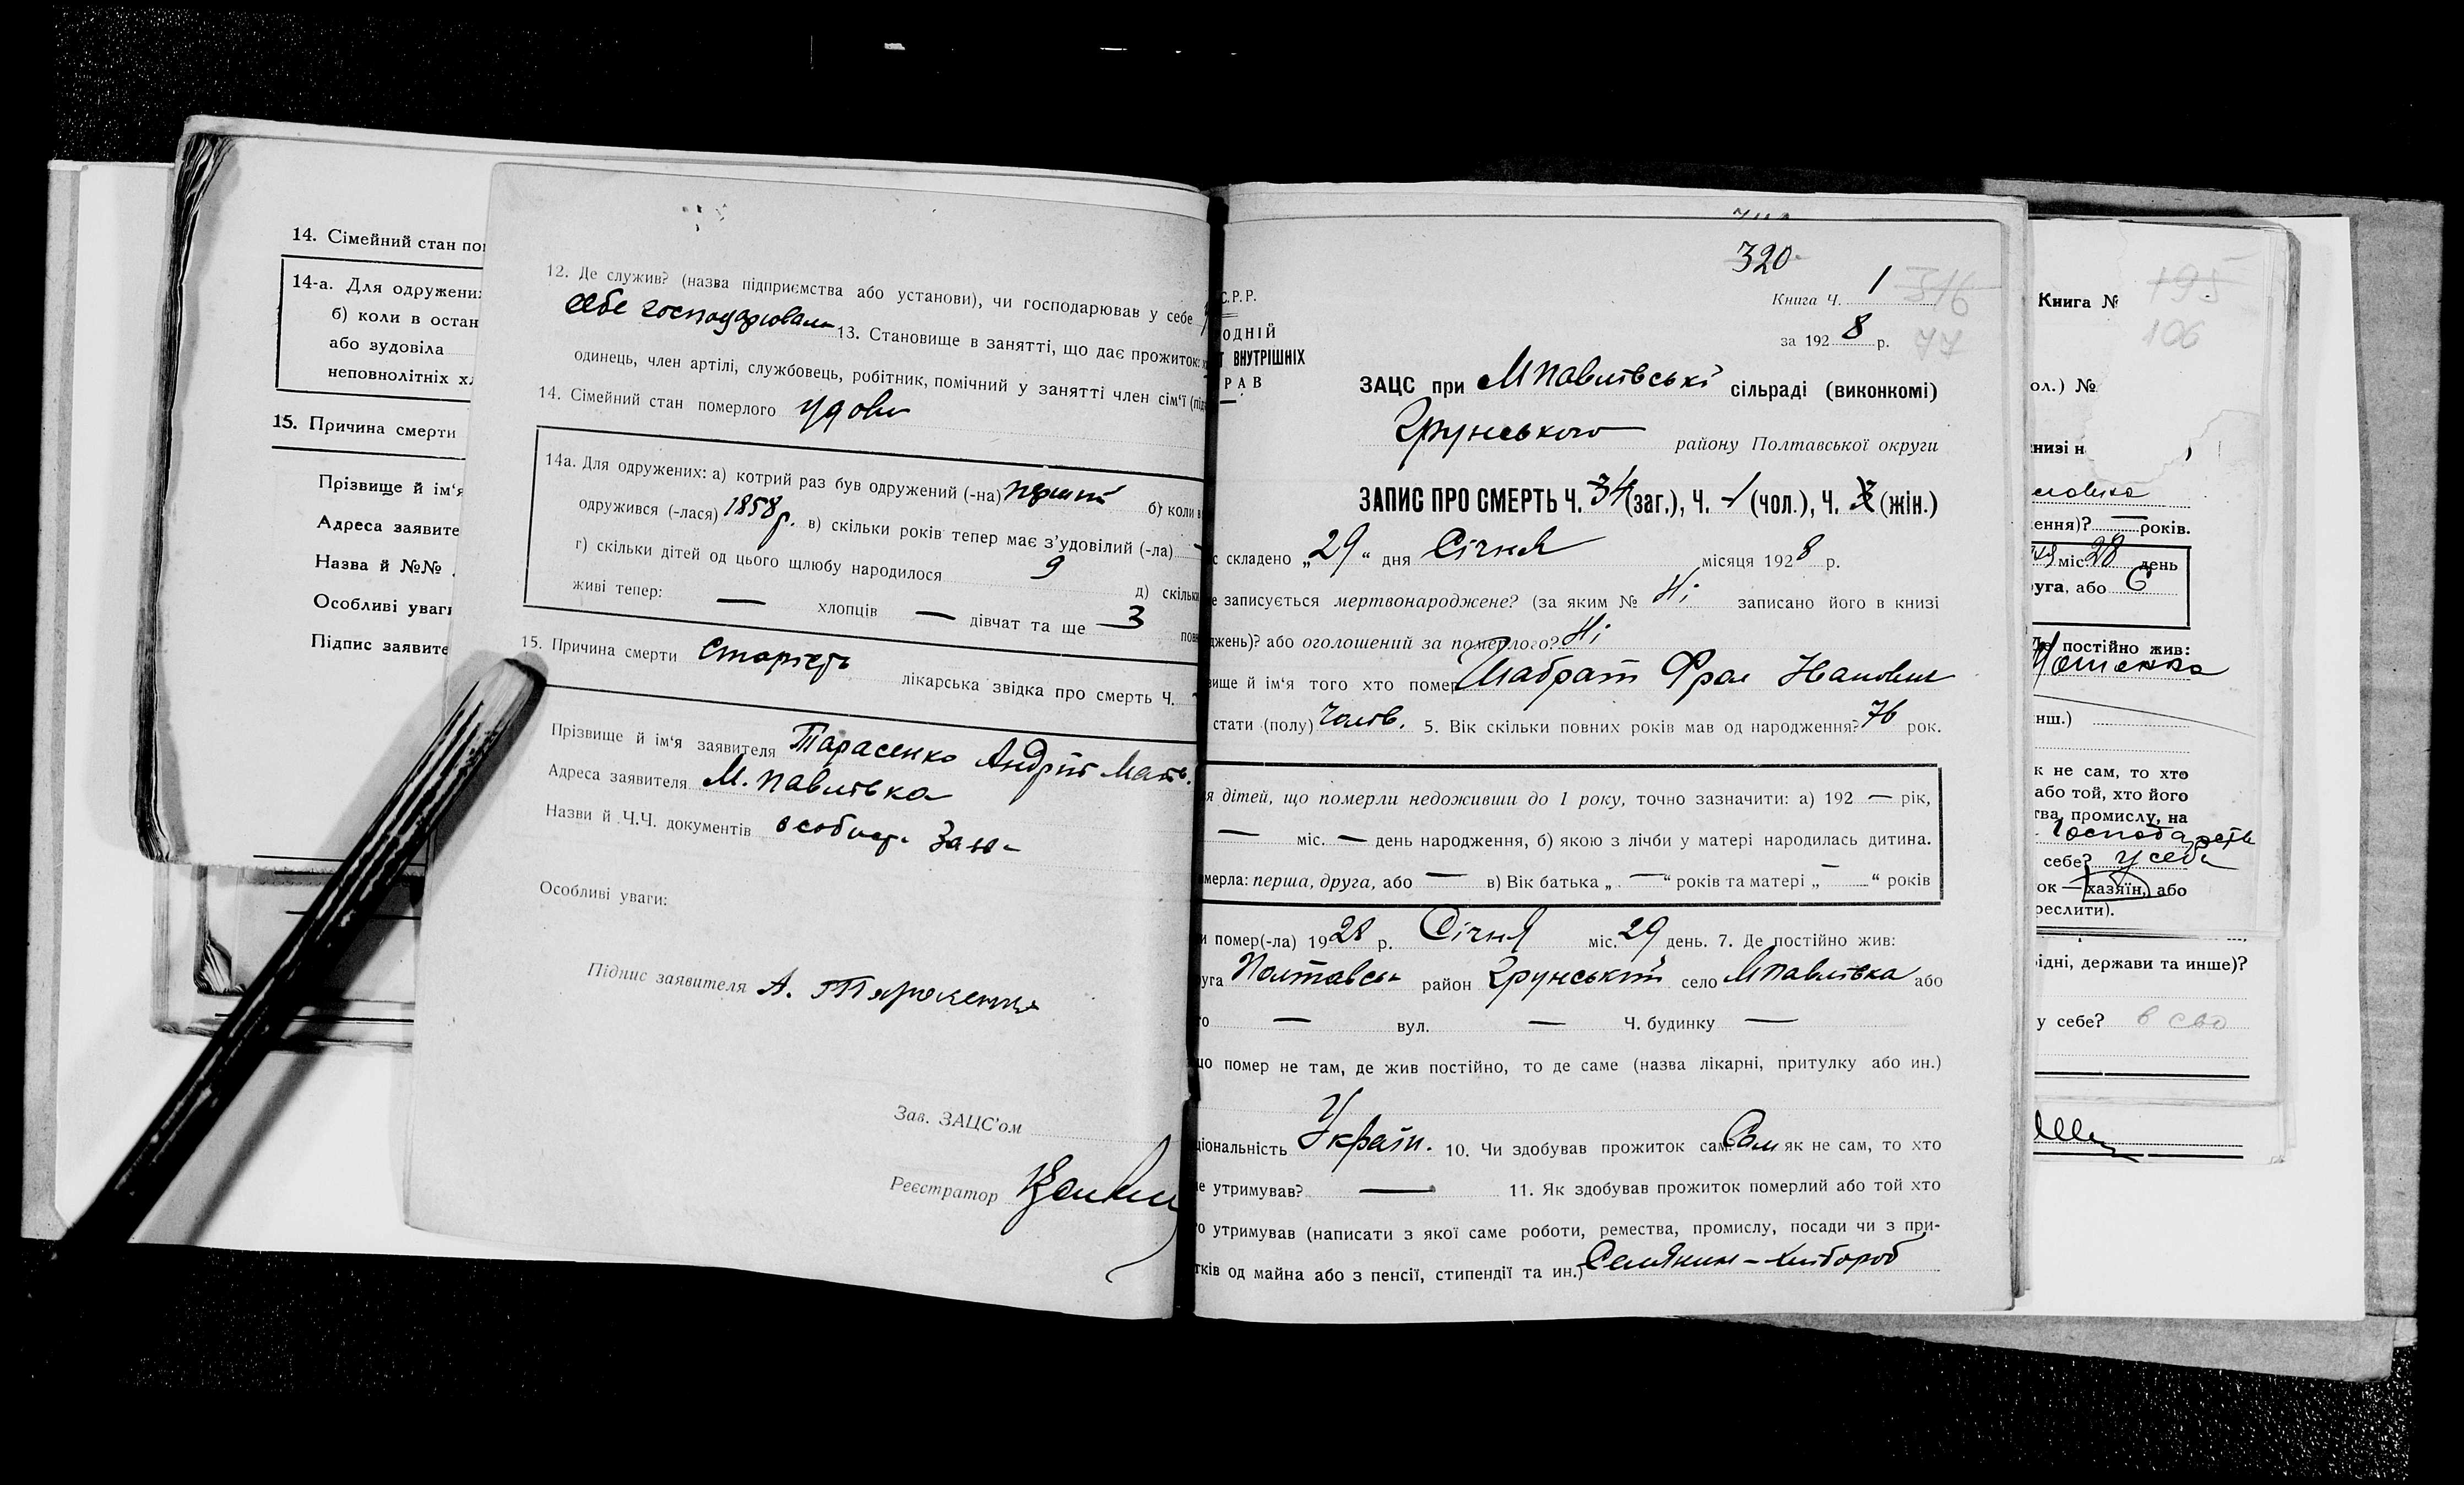 14. Сімейний стан по
14-а. Для одружени
б) коли в остан
або зудовіла
неповнолітніх х
15. Причина смерти
Прізвище й ім'я
Адреса заявите
Назва й №№
Особливі уваги
Підпис заявите
12. Де служив? (назва підприємства або установи), чи господарював у себе
себе господарював 13. Становище в занятті, що дає прожиток:
одинець, член артілі, службовець, робітник, помічний у занятті член сім'ї (під
14. Сімейний стан померлого удов
14а. Для одружених: а) котрий раз був одружений (-на) перший б) коли в
одружився (-лася) 1858 р. в) скільки років тепер має з'удовілий (-ла) —
г) скільки дітей од цього щлюбу народилося 9 д) скільки
живі тепер: — хлопців — дівчат та ще 3 пов
15. Причина смерти Старість лікарська звідка про смерть Ч.
Прізвище й ім'я заявителя Тарасенко Андрій Матв.
Адреса заявителя М. Павлівка
Назви й Ч.Ч. документів особист.
Особливі уваги:
Підпис заявителя А. Тарасенко
Зав. ЗАЦС'ом
Реєстратор
320
Книга Ч. 1 316
за 1928 р. 77
С.Р.Р.
ОДНІЙ
Т ВНУТРІШНІХ
РАВ
ЗАЦС при МПавлівські сільраді (виконкомі)
Грунського району Полтавської округи
ЗАПИС ПРО СМЕРТЬ Ч. 34 (заг.), Ч. 1 (чол.), Ч. (жін.)
с складено „29" дня Січня місяця 1928 р.
е записується мертвонароджене? (за яким № Ні записано його в книзі
джень)? або оголошений за померлого? Ні
вище й ім'я того хто помер Шабрат Фрол Иванович
стати (полу) Чолов. 5. Вік скільки повних років мав од народження? 76 рок.
я дітей, що померли недоживши до 1 року, точно зазначити: а) 192 — рік,
— міс. — день народження, б) якою з лічби у матері народилась дитина.
мерла: перша, друга, або — в) Вік батька „ — " років та матері „ — " років
и помер(-ла) 1928 р. Січня міс. 29 день. 7. Де постійно жив:
уга Полтавськ район Грунський село МПавлівка або
го — вул. — Ч. будинку —
що помер не там, де жив постійно, то де саме (назва лікарні, притулку або ин.)
ціональність Україн. 10. Чи здобував прожиток сам Сам як не сам, то хто
е утримував? — 11. Як здобував прожиток померлий або той хто
о утримував (написати з якої саме роботи, ремества, промислу, посади чи з при-
тків од майна або з пенсії, стипендії та ин.) Селянин – хлібороб
Книга № 195
106
ол.) №
книзі н
ення)? — років.
міс 28 день
руга, або 6
Де постійно жив:
инш.)
к не сам, то хто
або той, хто його
тва, промислу, на
себе? у себе
ок — хазяїн, або
реслити).
рідні, держави та инше)?
у себе?